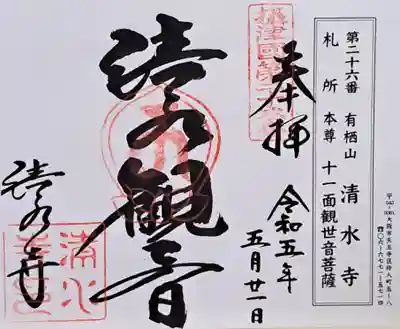 第二十六番 有栖山 清水寺
札所 本尊 十一面観世音菩薩
奉拝
令和五年
五月廿一日
清水観音
清水寺